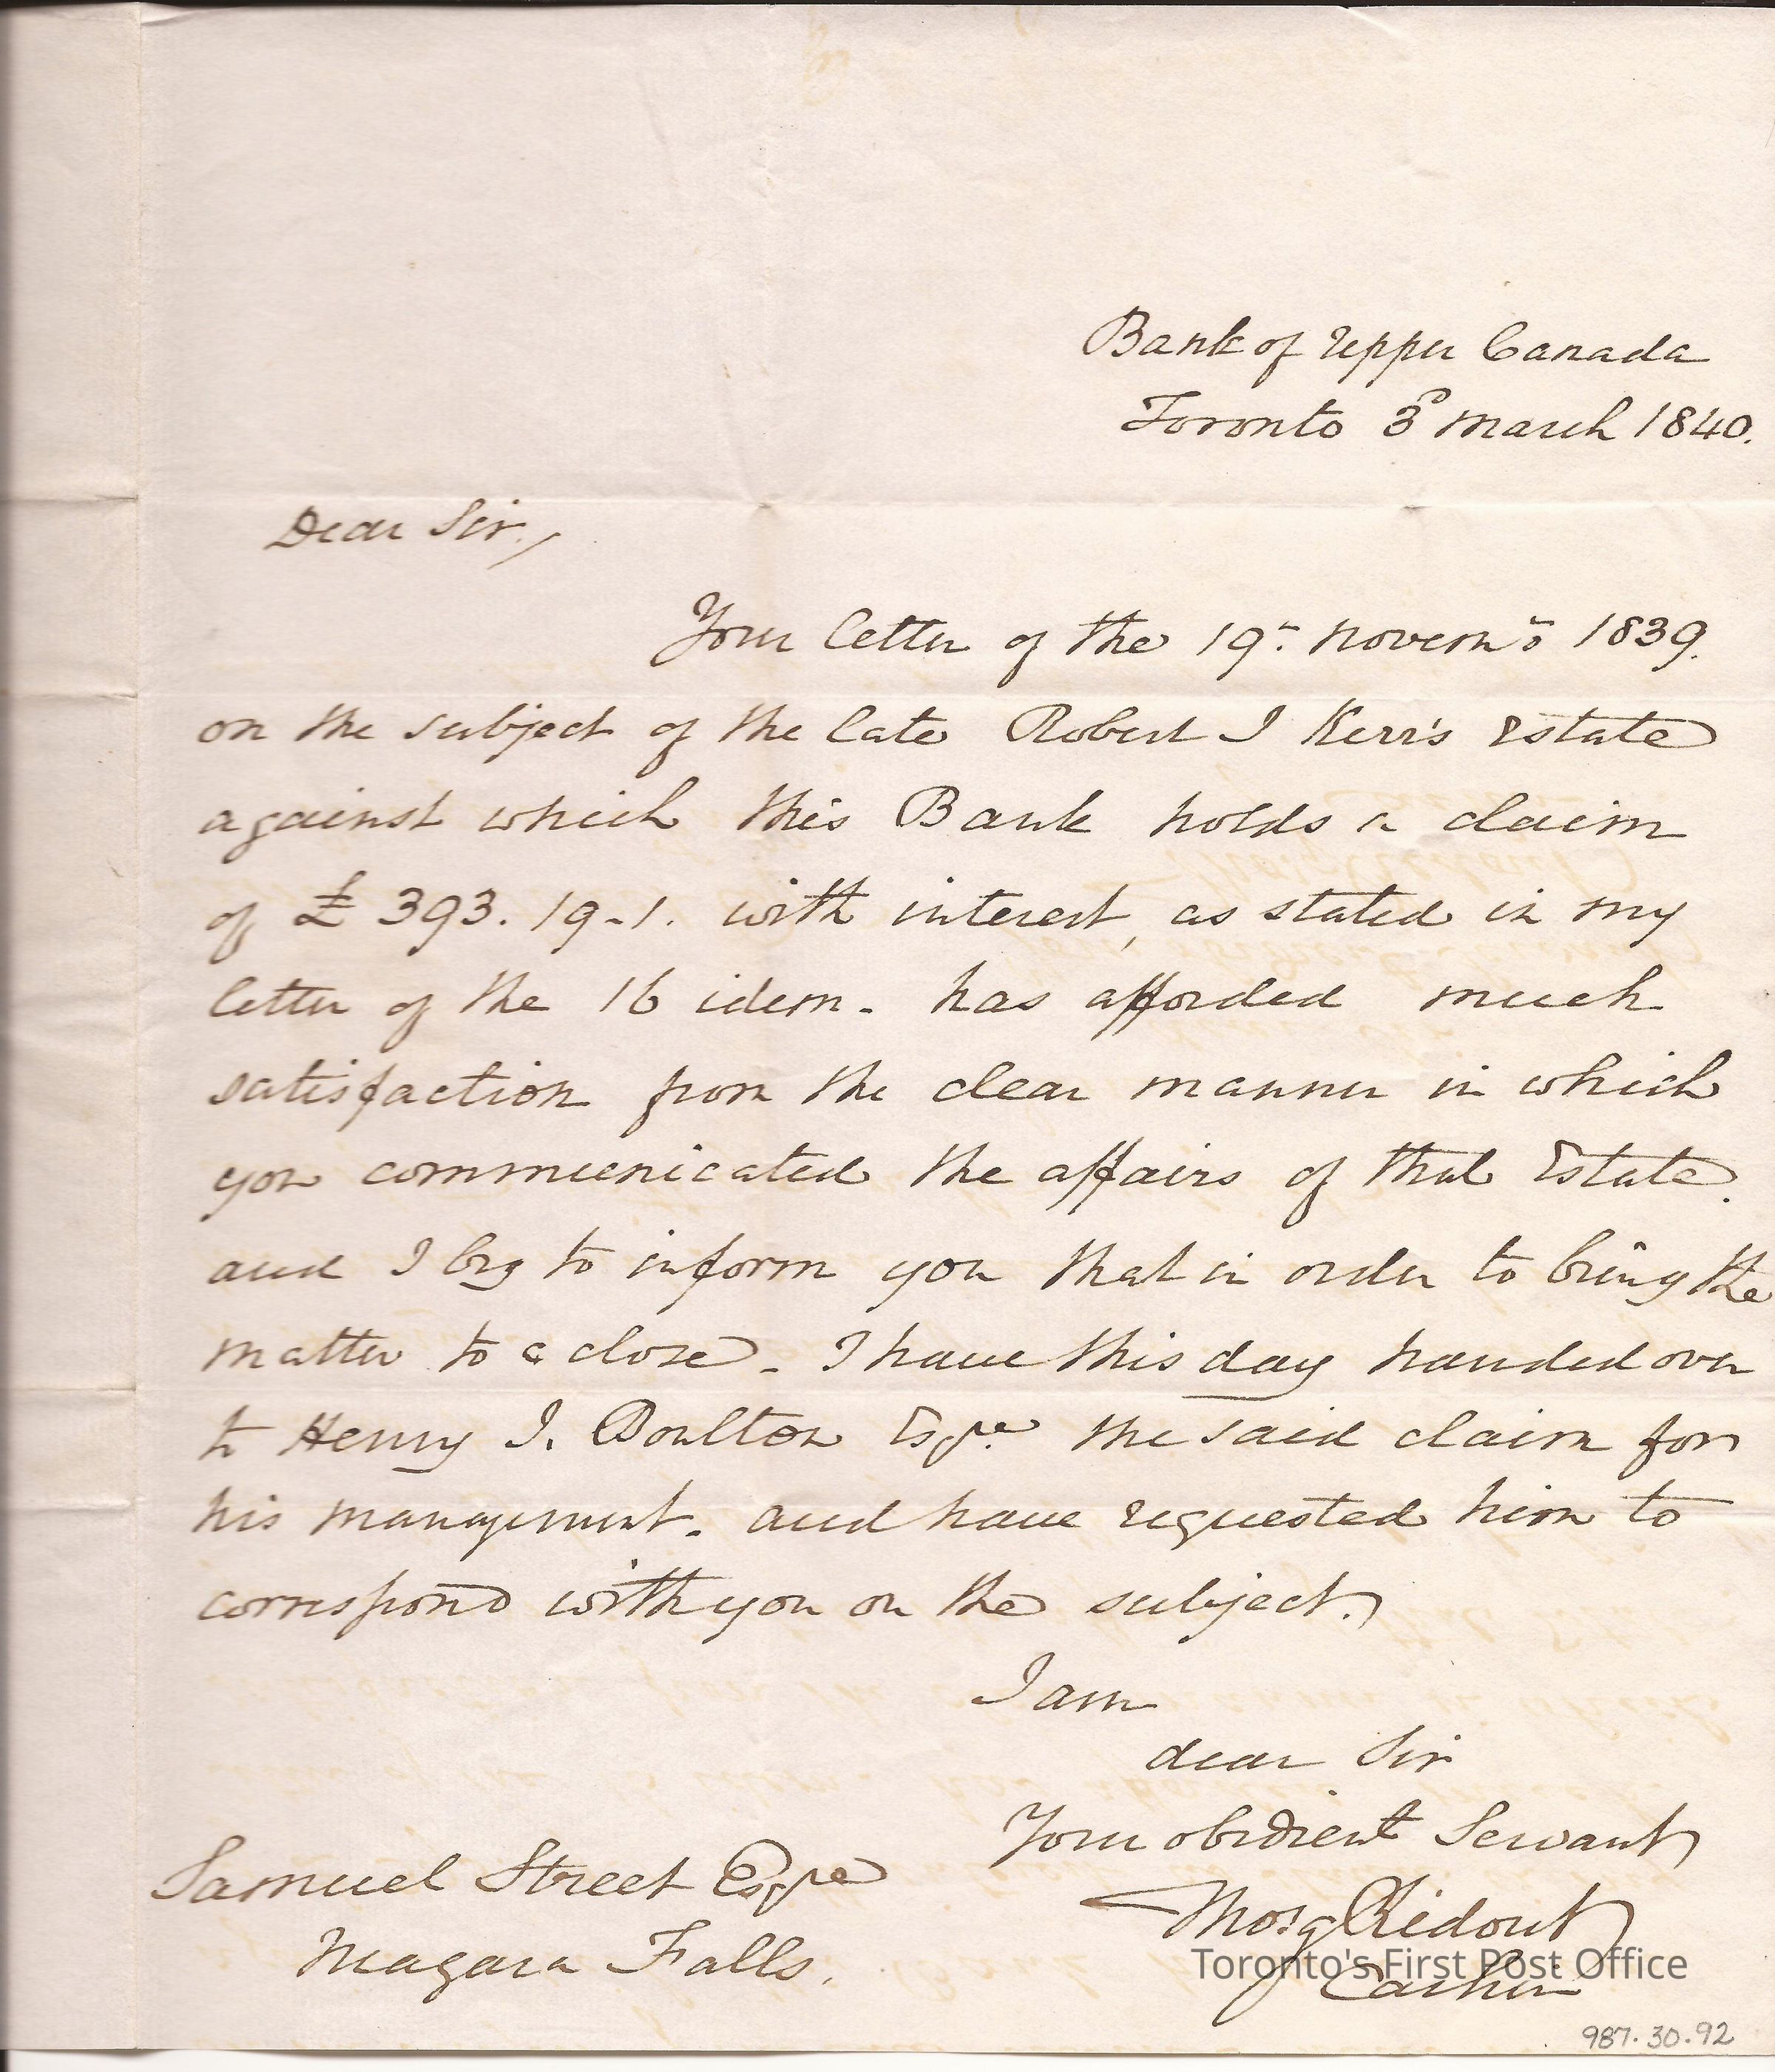 Bank of Upper Canada
Toronto 3d March 1840.
Dear Sir,
Your letter of the 19th Novemb 1839.
on the subject of the late Robert I Kerr's Estate
against which this Bank holds a claim
of £ 393. 19-1. with interest, as stated in my
letter of the 16 idem - has afforded much
satisfaction from the clear manner in which
you communicated the affairs of that Estate.
and I beg to inform you that in order to bring the
matter to a close - I have this day handed over
to Henry I. Boulton Esqre the said claim for
his management - and have requested him to
correspond with you on the subject.
I am
dear Sir
Your obedient Servant
Thos G Ridout
Cashier
Samuel Street Esqre
Niagara Falls.
Toronto's First Post Office
987.30.92